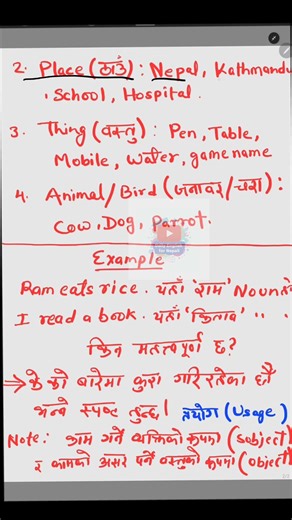 2. Place (ठाउँ) : Nepal, Kathmandu
School, Hospital.
3. Thing (वस्तु) : Pen, Table,
Mobile, Water, game name
4. Animal/Bird (जनावर/चरा) :
Cow, Dog, Parrot.
Example
Ram eats rice. यहाँ 'राम' Noun हो
I read a book. यहाँ 'किताब' " "
किन महत्वपूर्ण छ?
→ के को बारेमा कुरा गरि रहेका छौं
भन्ने स्पष्ट हुन्छ। प्रयोग (Usage)
Note: काम गर्ने व्यक्तिको रूपमा (subject)
र कामको असर पर्ने वस्तुको रूपमा (object)